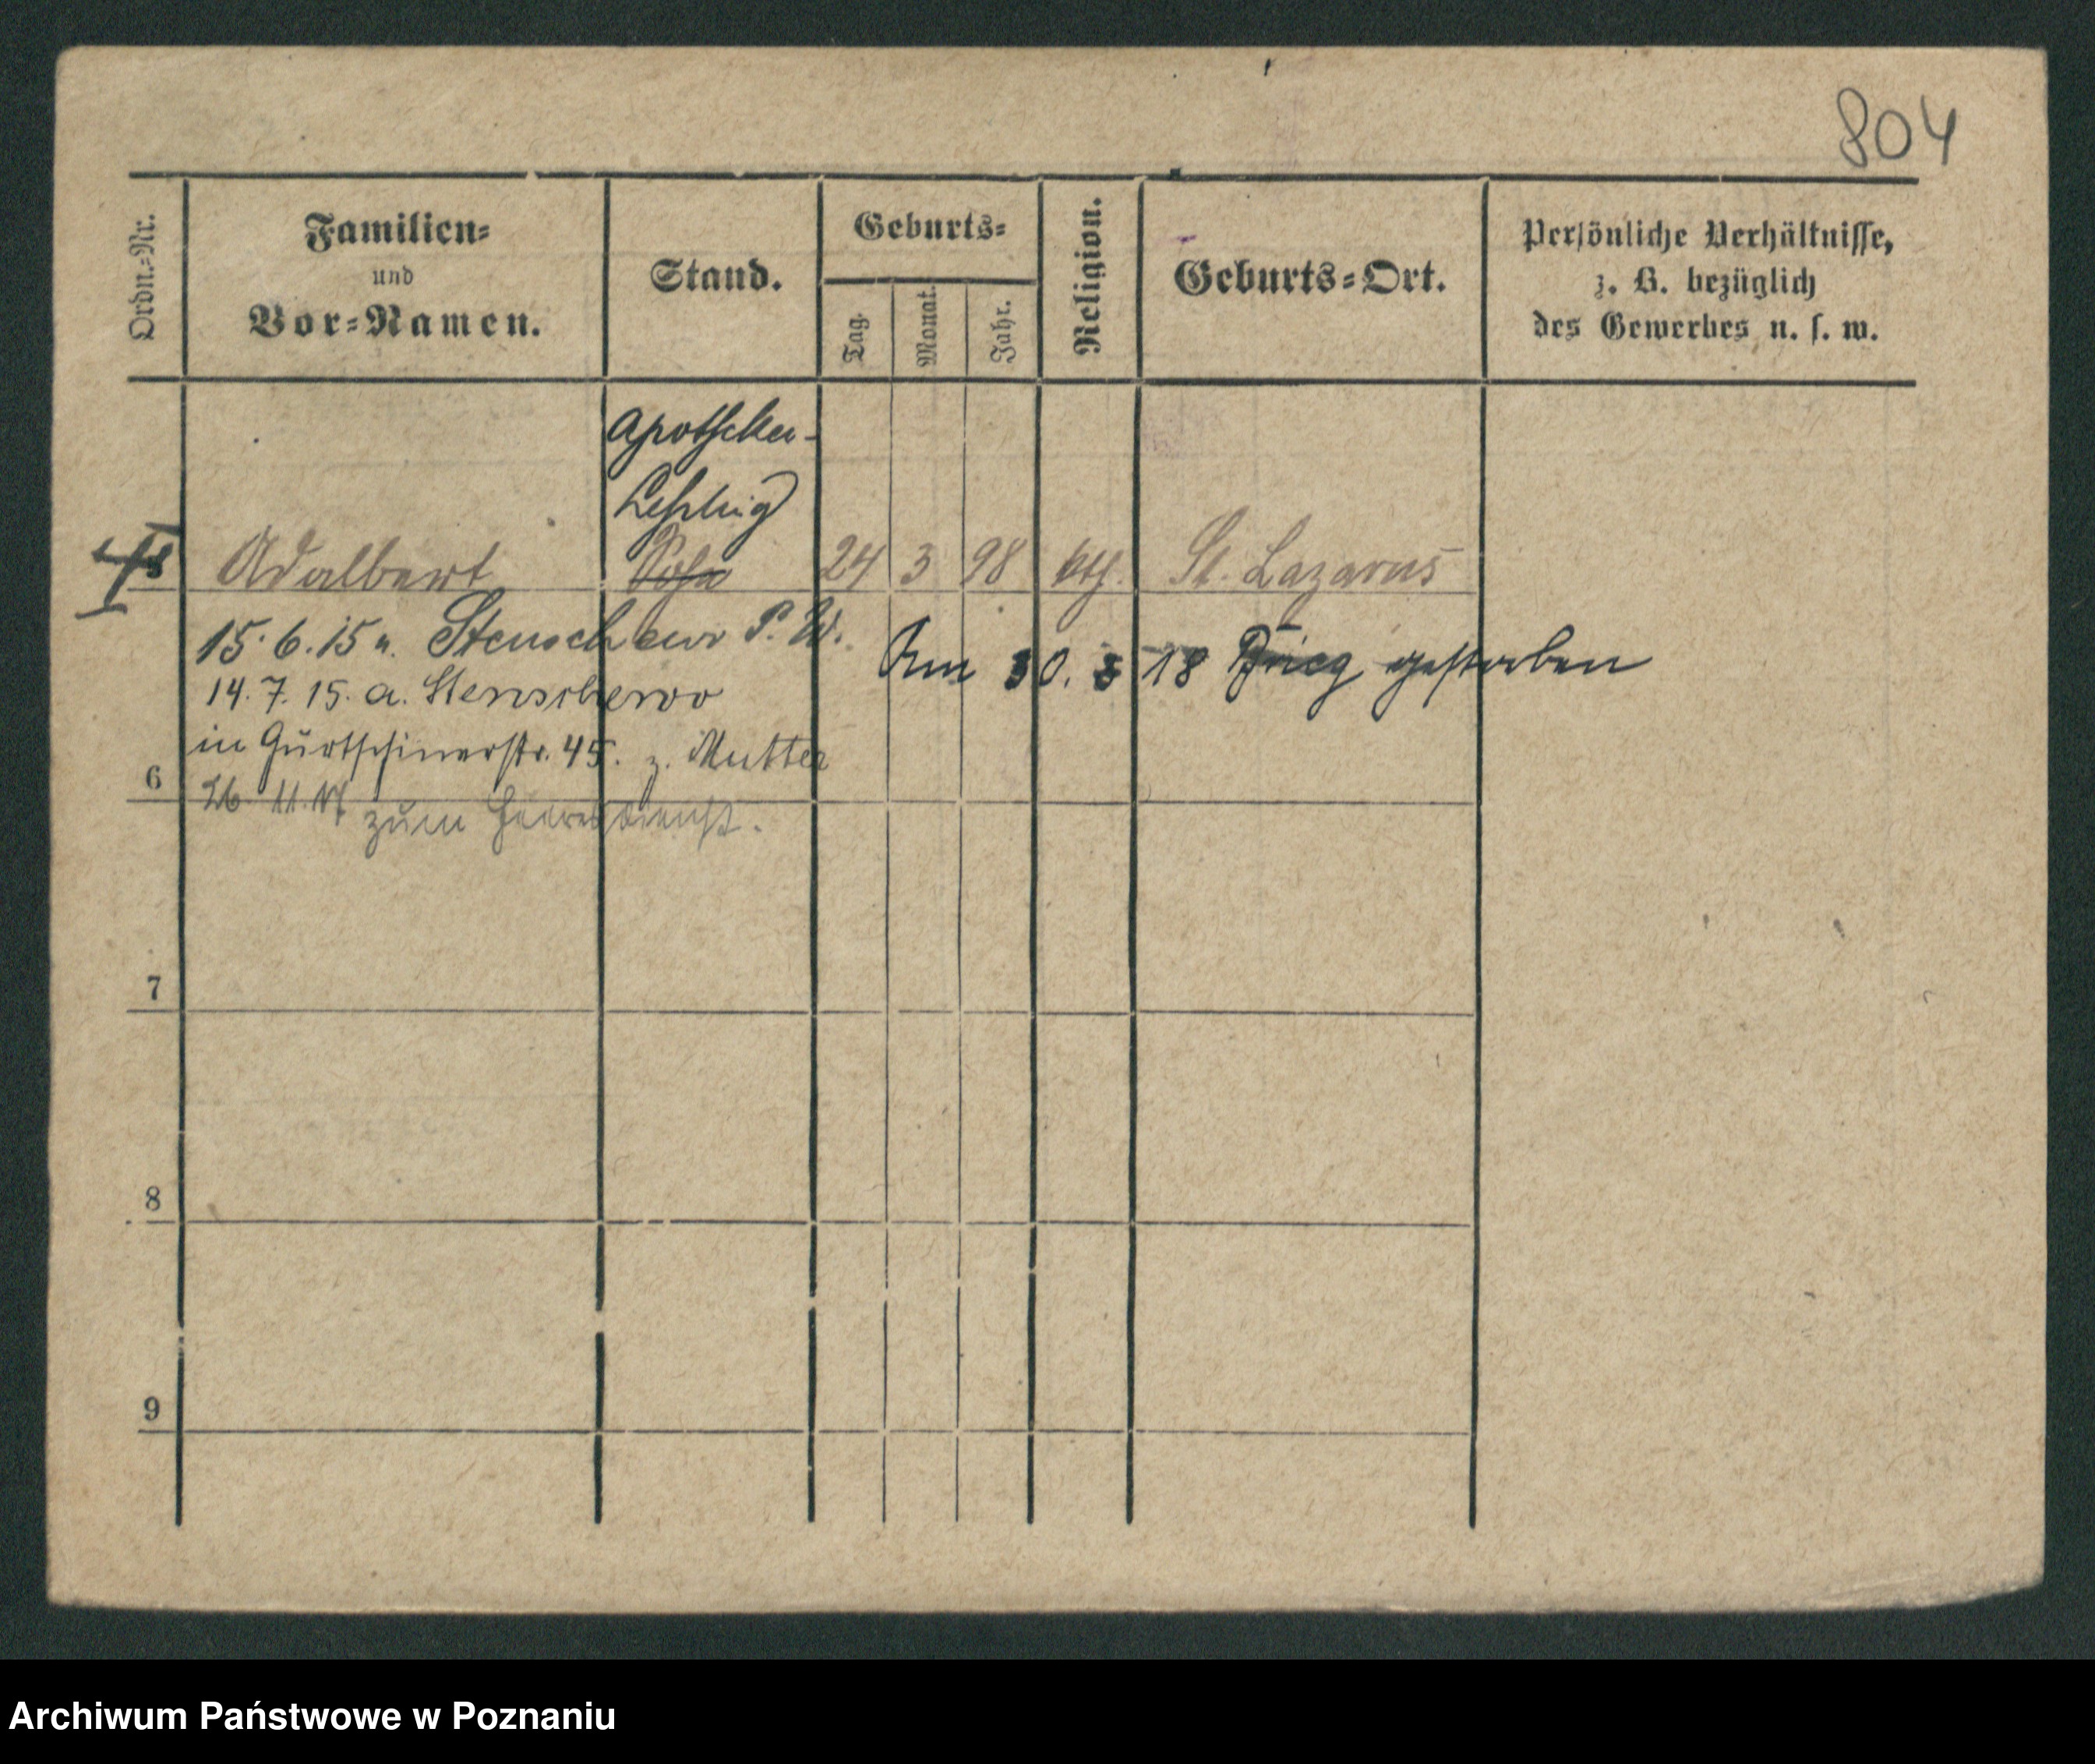 804
Ordn.-Nr.
Familien-
und
Vor-Namen.
Stand.
Geburts-
Tag.
Monat.
Jahr.
Religion.
Geburts-Ort.
Persönliche Verhältnisse,
z. B. bezüglich
des Gewerbes u. s. w.
Apotheker-
Lehrling
Adalbert Sohn 24 3 98 kth. St. Lazarus
15.6.15 n. Stenschewo P. W.
Am 30. 3 18 Brieg gestorben
14.7.15. a. Stenschewo
in Gurtschinerstr. 45. z. Mutter
6
26 11.17 zum Heeresdienst.
7
8
9
Archiwum Państwowe w Poznaniu